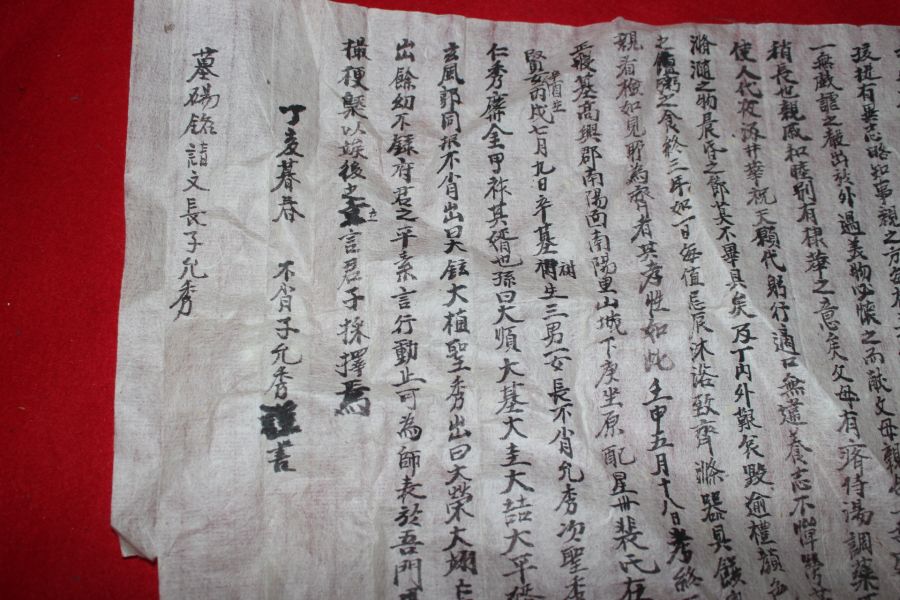 孩提有無忘略知事親之方
一無戲謔之敖出於外過美物必懷之而獻父母親
稍長也親戚和睦別有棣華之意矣父母有瘠侍湯調藥
使人代夜汲井華祝天願代躬行適口無違養志不憚
滌瀡之物晨昏之節莫不畢具矣及丁內外艱哀毀逾禮顏
之饘粥之食終三年如一日每值忌辰沐浴致齊滌器具饌
親看檢如見所為齊者其孝性如此壬申五月十八日考終
正寢墓高興郡南陽面南陽里山城下庚坐原配星州裴氏在
賢女辛酉生丙戌七月九日卒墓祔生三男一女長不肖允秀次聖秀
仁秀廉金甲祚其婿也孫曰大順大基大圭大喆大平
玄風郭同派不肖出昊鉉大植聖秀出曰大榮大翊
出餘幼不錄府君之平素言行動止可為師表於吾門
撮梗槩以竢後之立言君子採擇焉
丁亥暮春 不肖子允秀謹書
墓碣銘請文長子允秀